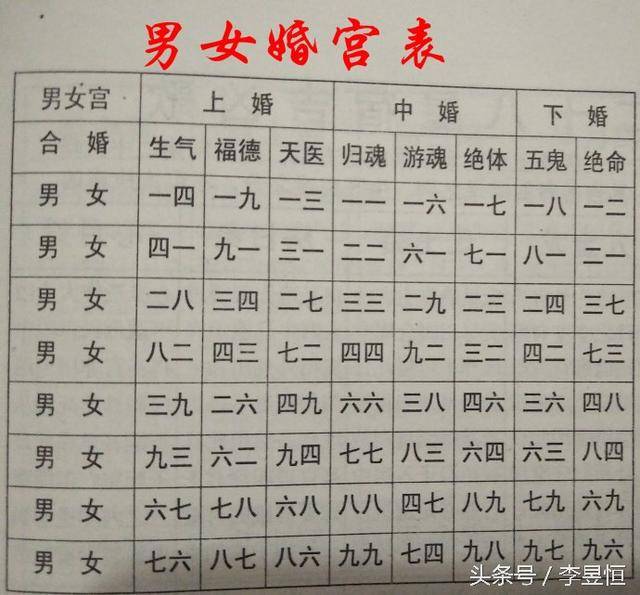 男女婚宫表
男女宫 上婚 中婚 下婚
合婚 生气 福德 天医 归魂 游魂 绝体 五鬼 绝命
男女 一四 一九 一三 一一 一六 一七 一八 一二
男女 四一 九一 三一 二二 六一 七一 八一 二一
男女 二八 三四 二七 三三 二九 二三 二四 三七
男女 八二 四三 七二 四四 九二 三二 四二 七三
男女 三九 二六 四九 六六 三八 四六 三六 四八
男女 九三 六二 九四 七七 八三 六四 六三 八四
男女 六七 七八 六八 八八 四七 八九 七九 六九
男女 七六 八七 八六 九九 七四 九八 九七 九六
头条号 / 李昱恒